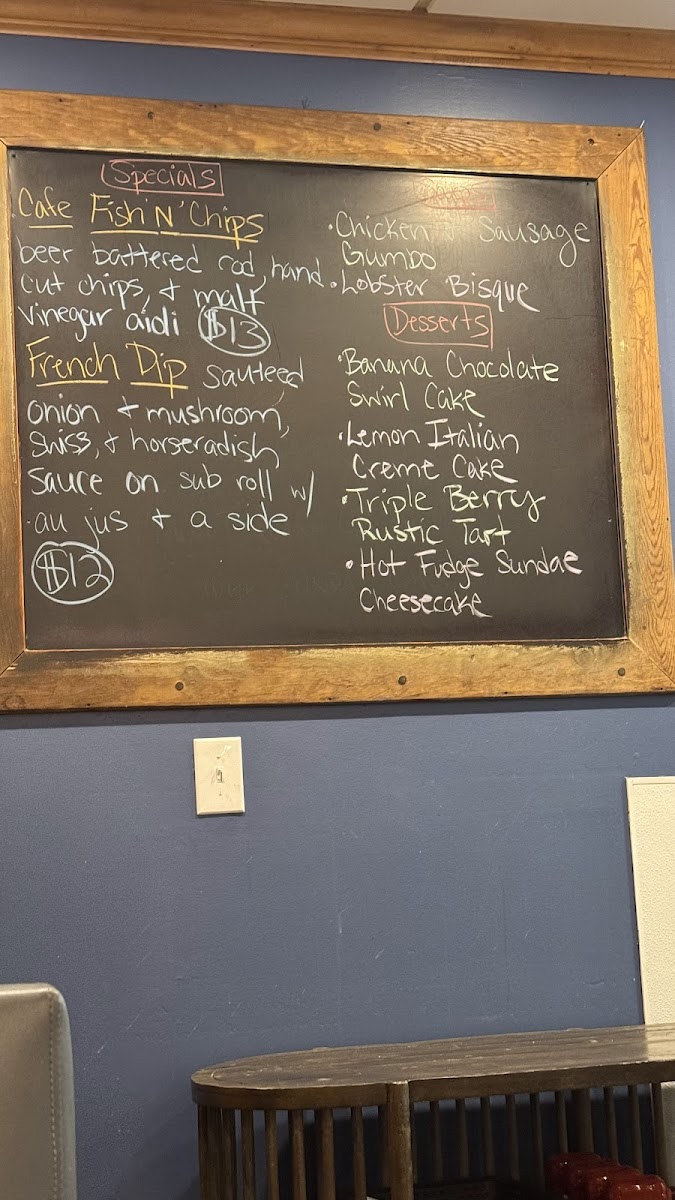 Specials
Cafe Fish 'N' Chips
beer battered cod, hand
cut chips, & malt
vinegar aioli $13
French Dip sauteed
onion & mushroom,
swiss, & horseradish
sauce on sub roll w/
au jus & a side
$12
• Chicken & Sausage
Gumbo
• Lobster Bisque
Desserts
• Banana Chocolate
Swirl Cake
• Lemon Italian
Creme Cake
• Triple Berry
Rustic Tart
• Hot Fudge Sundae
Cheesecake